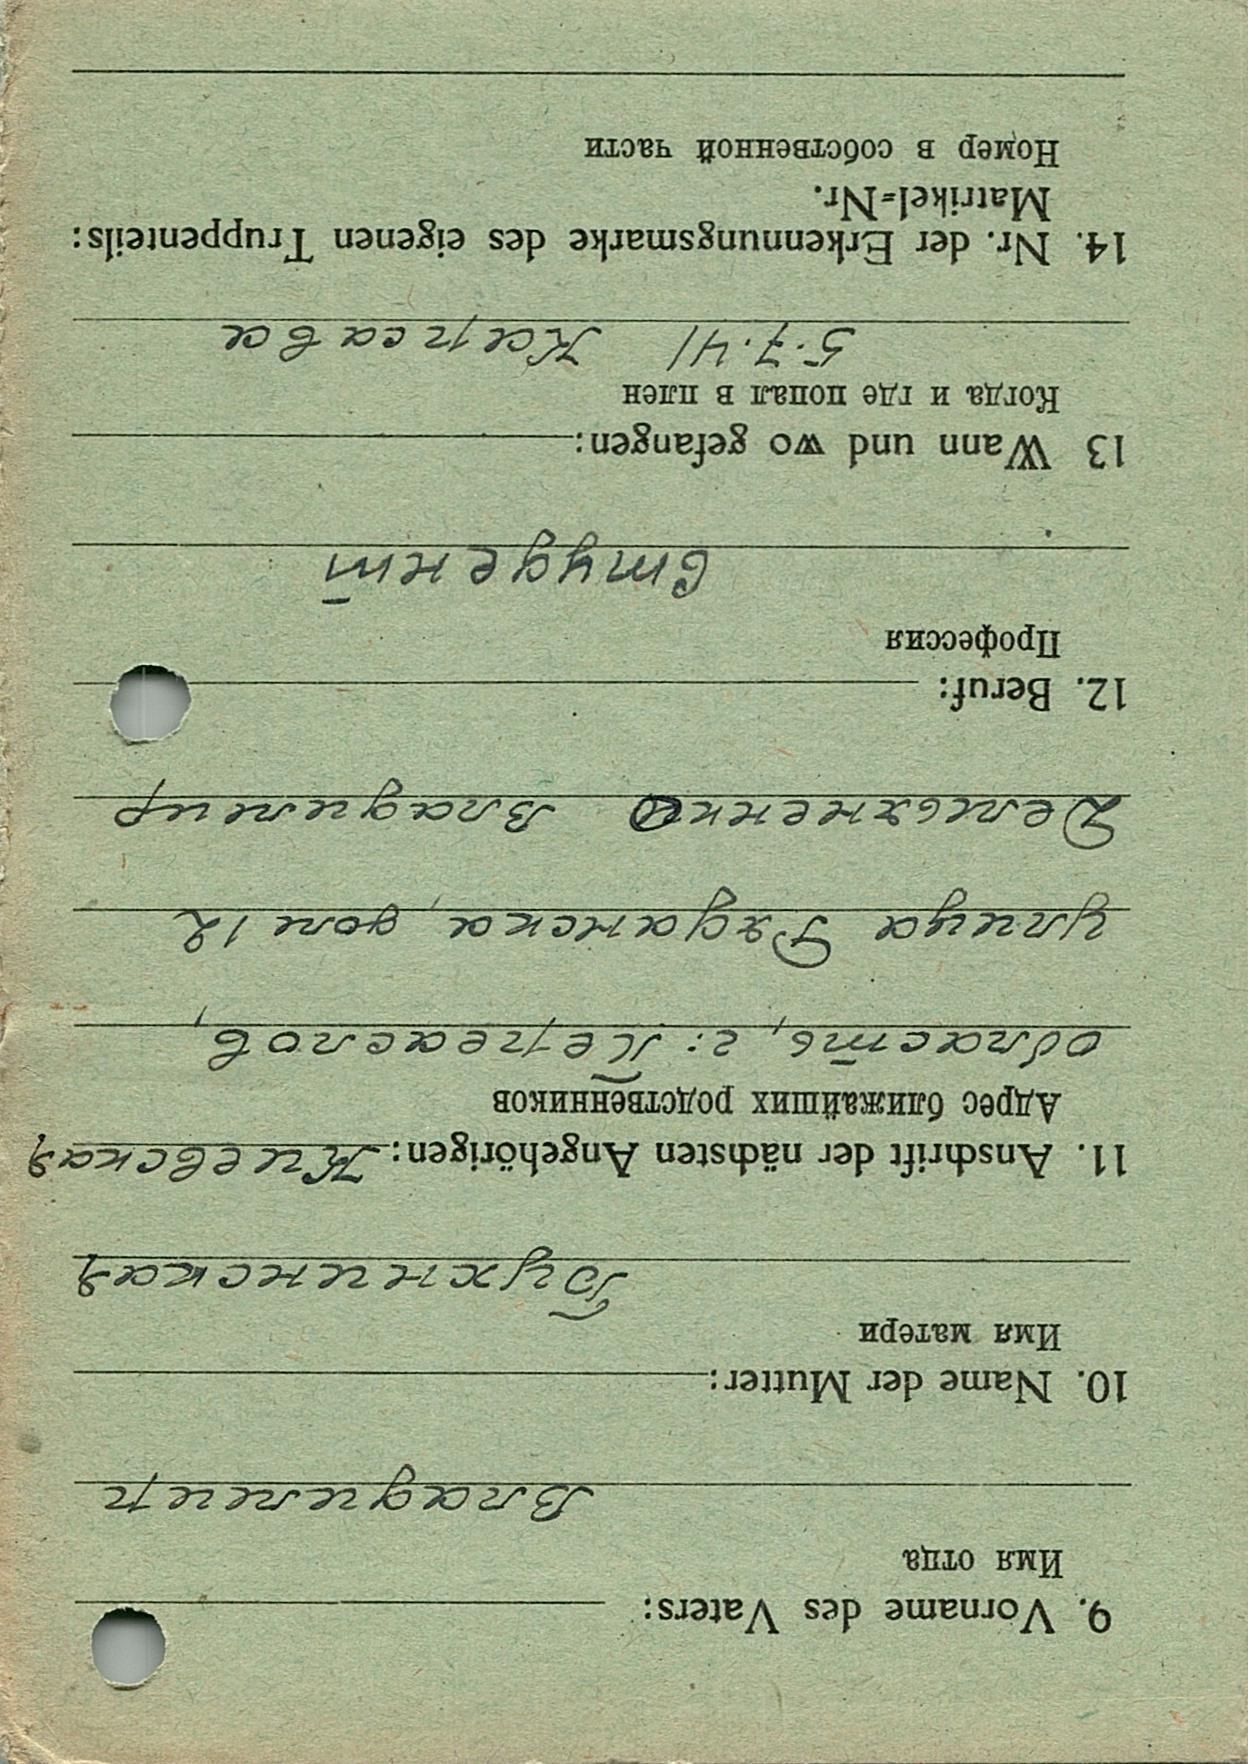 9. Vorname des Vaters:
Имя отца
Владимир
10. Name der Mutter:
Имя матери
Бухнинская
11. Anschrift der nächsten Angehörigen: Киевская
Адрес ближайших родственников
область, г. Переяслов,
улица Рядянска, дом 12
Демьяненко Владимир
12. Beruf:
Профессия
Студент
13 Wann und wo gefangen:
Когда и где попал в плен
5.7.41 Карсава
14. Nr. der Erkennungsmarke des eigenen Truppenteils:
Matrikel=Nr.
Номер в собственной части